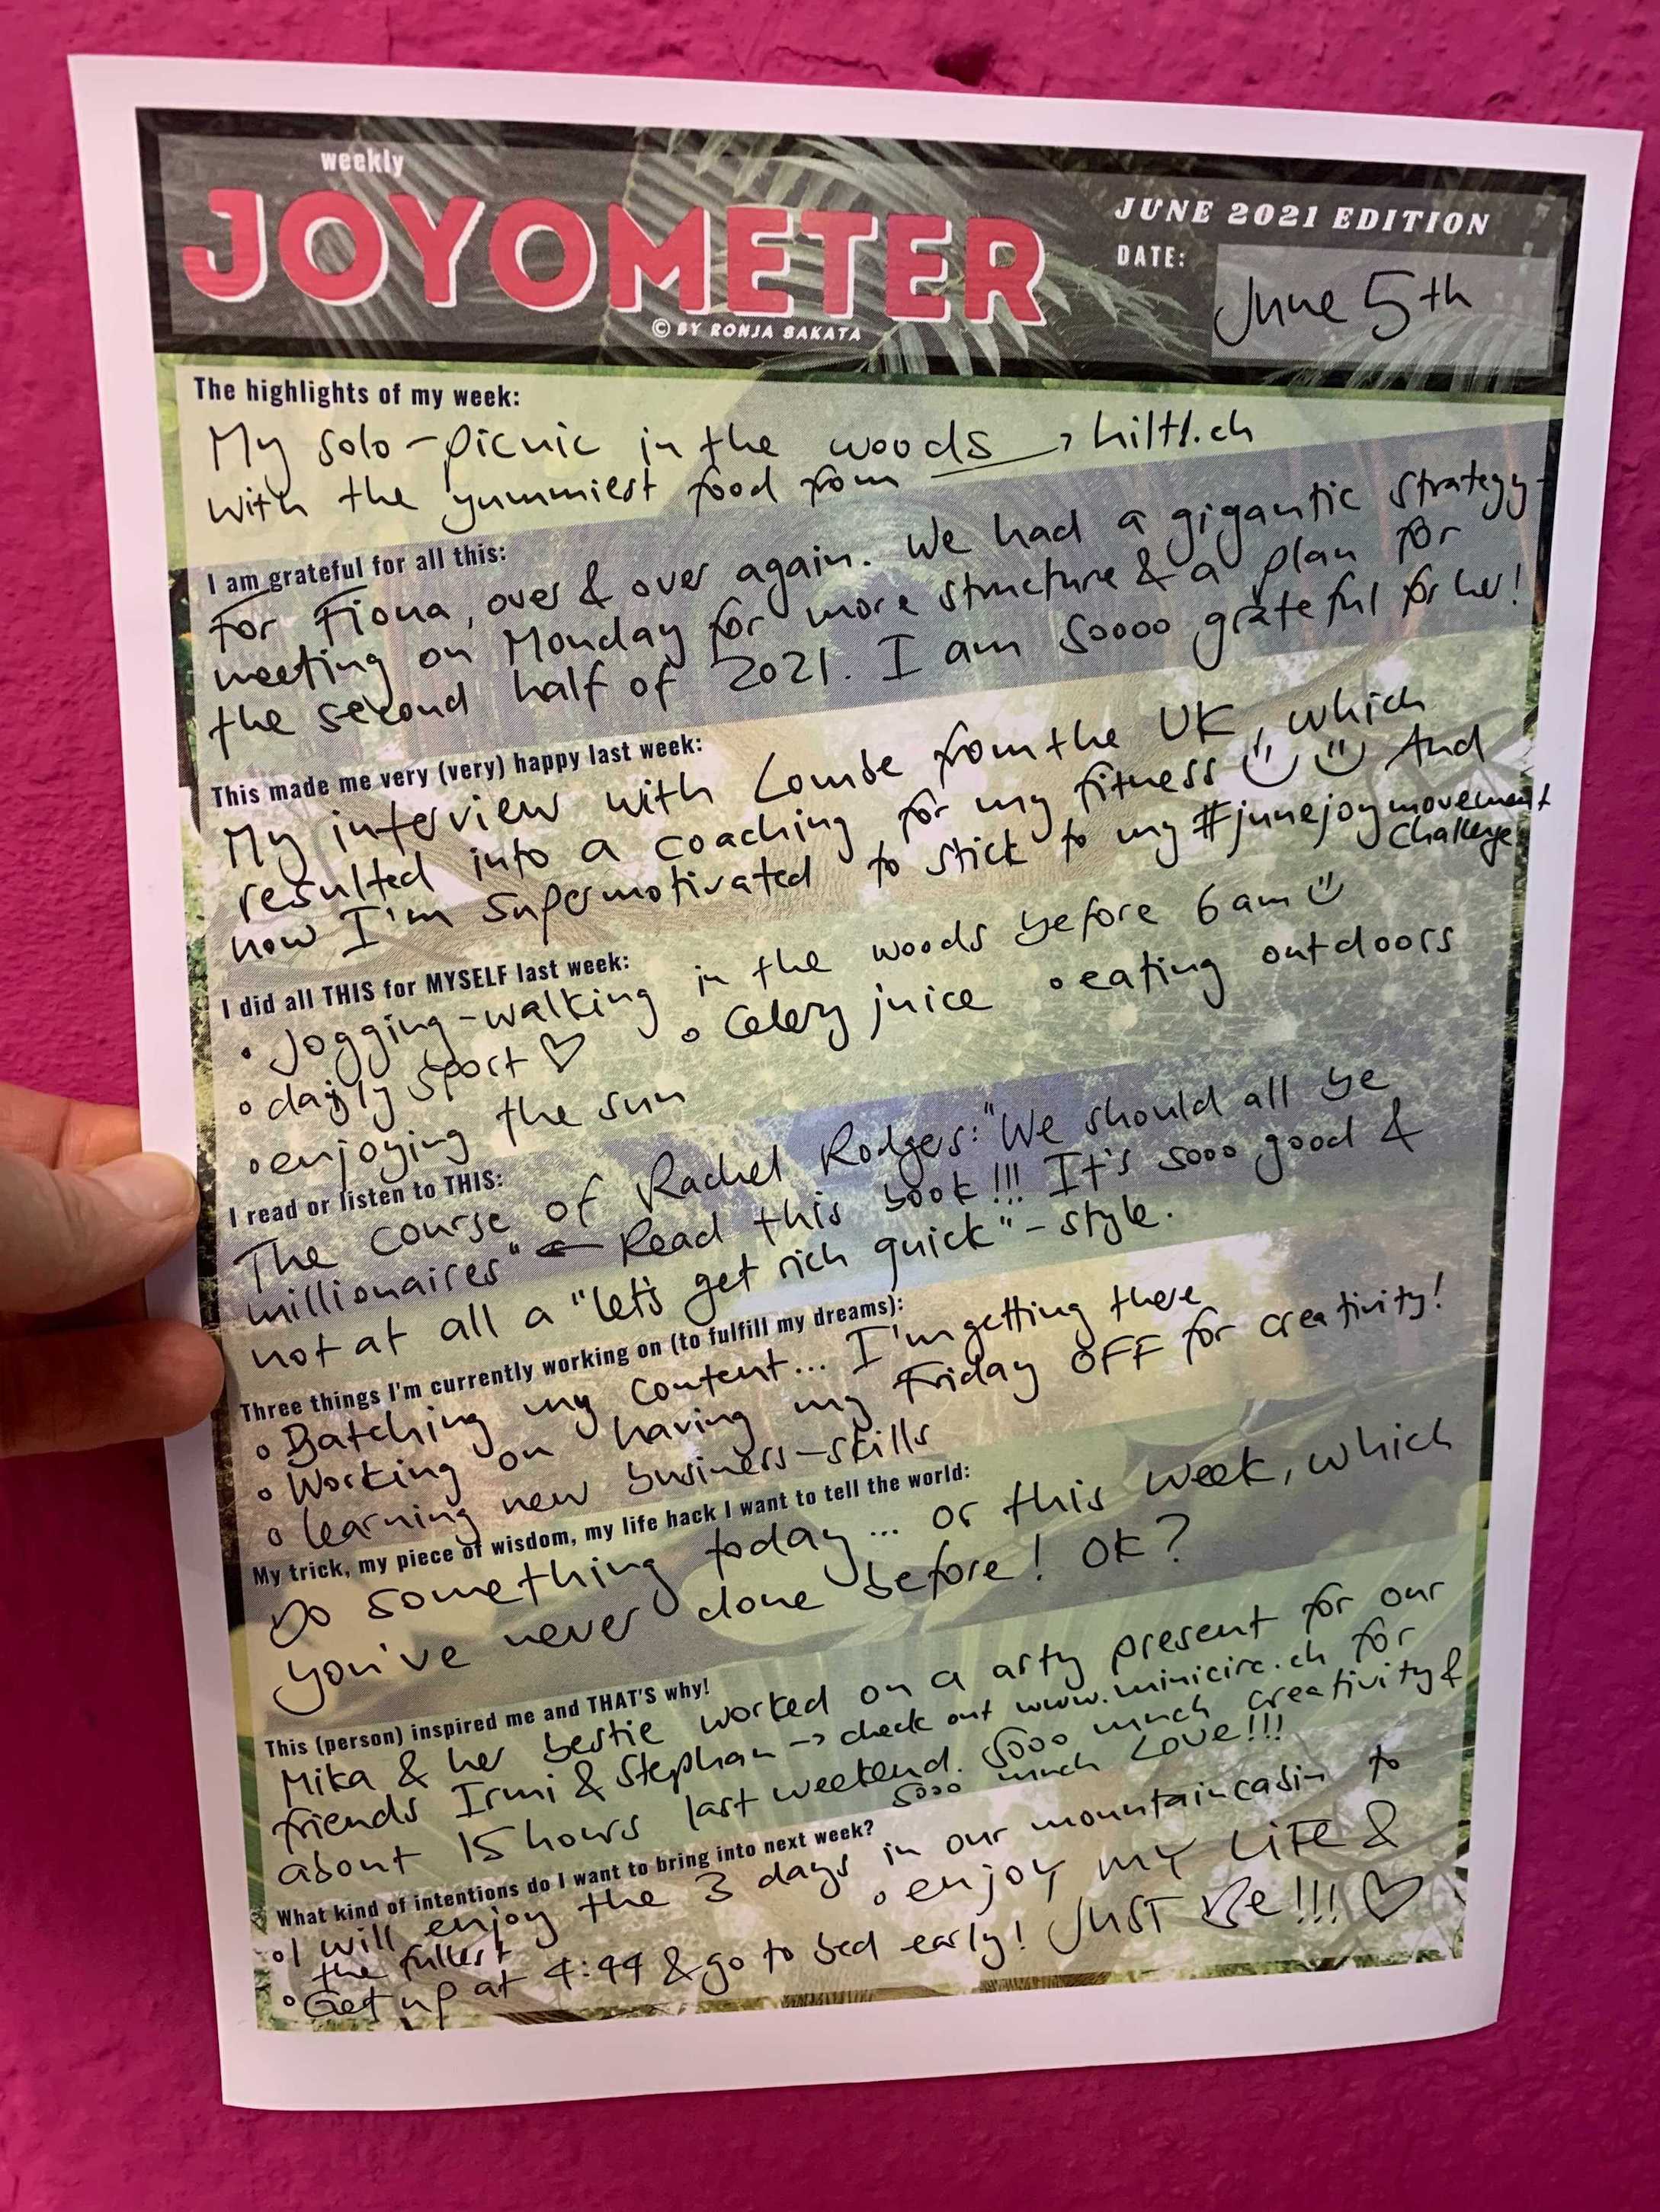 weekly
JOYOMETER
© BY RONJA SAKATA
JUNE 2021 EDITION
DATE:
June 5th
The highlights of my week:
My solo-picnic in the woods
with the yummiest food from → hiltl.ch
I am grateful for all this:
For Fiona, over & over again. We had a gigantic strategy-
meeting on Monday for more structure & a plan for
the second half of 2021. I am soooo grateful for her!
This made me very (very) happy last week:
My interview with Louise from the UK, which
resulted into a coaching for my fitness And
now I'm supermotivated to stick to my #junejoymovement
challenge
I did all THIS for MYSELF last week:
• Jogging-walking in the woods before 6 am
• daily sport ♡ • Celery juice • eating outdoors
• enjoying the sun
I read or listen to THIS:
The course of Rachel Rodgers: "We should all be
millionaires" ← Read this book!!! It's sooo good &
not at all a "let's get rich quick"-style.
Three things I'm currently working on (to fulfill my dreams):
• Batching my content... I'm getting there
• Working on having my Friday OFF for creativity!
• learning new business-skills
My trick, my piece of wisdom, my life hack I want to tell the world:
Do something today... or this week, which
you've never done before! OK?
This (person) inspired me and THAT'S why!
Mika & her bestie worked on a arty present for our
friends Irmi & Stephan → check out www.minicirc.ch for
about 15 hours last weekend. Sooo much creativity &
sooo much LOVE!!!
What kind of intentions do I want to bring into next week?
• I will enjoy the 3 days in our mountaincabin to
the fullest • enjoy MY LIFE &
• Get up at 4:44 & go to bed early! JUST Be!!! ♡